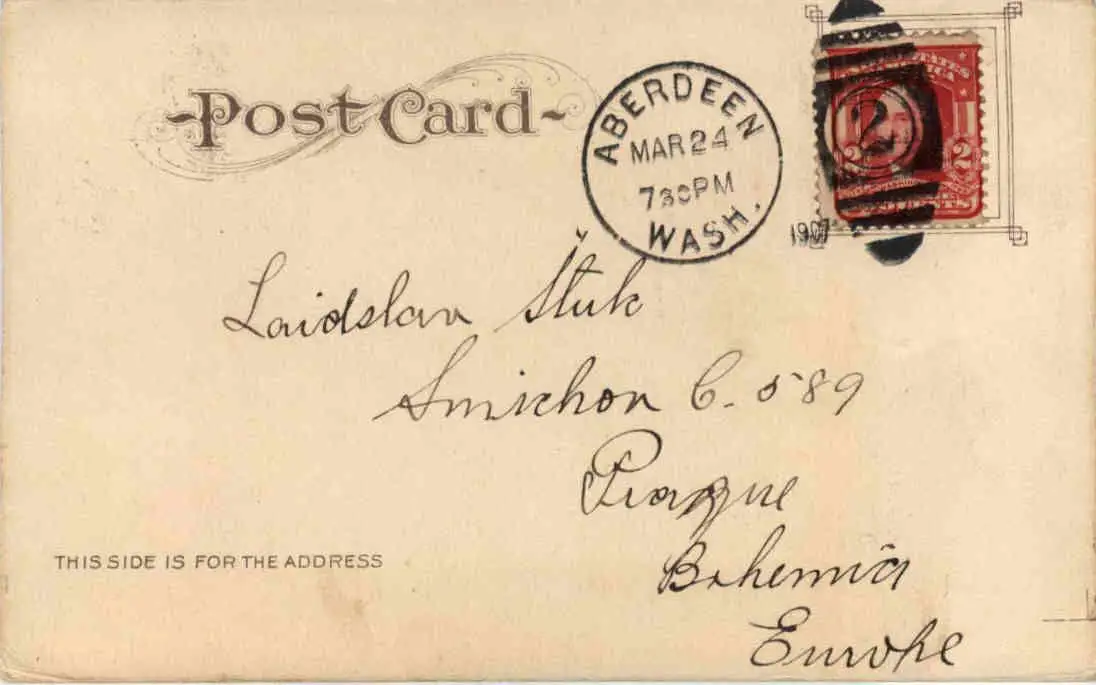 Post Card
ABERDEEN
MAR 24
730 PM
WASH.
1907
2
2 2
Laidslav Štuk
Smichov C. 589
Prague
Bohemia
Europe
THIS SIDE IS FOR THE ADDRESS